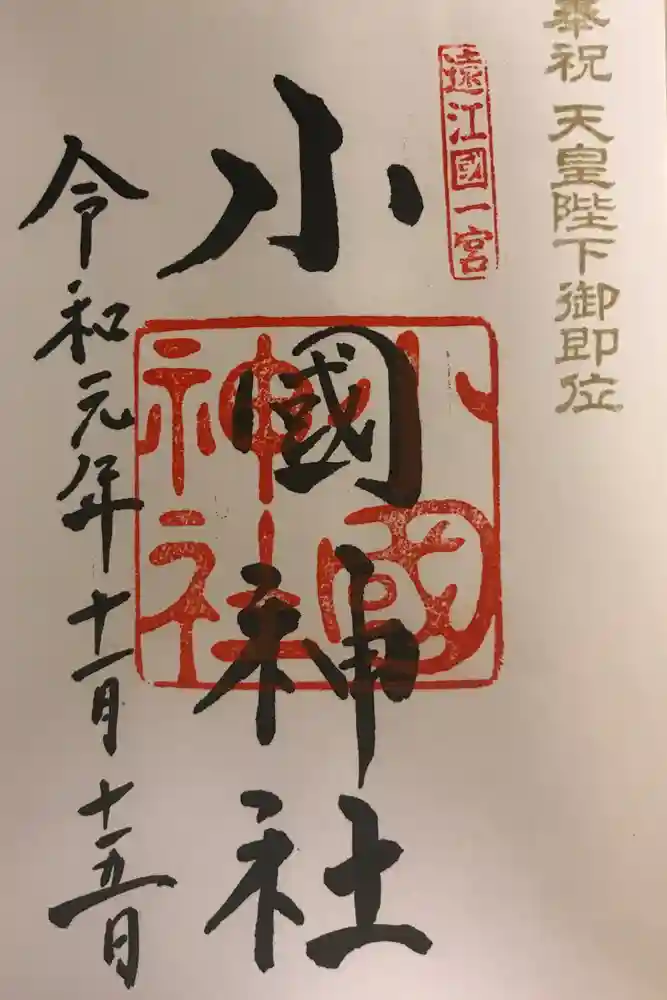 奉祝 天皇陛下御即位
遠江國一宮
小國神社
小國神社
令和元年十一月十五日